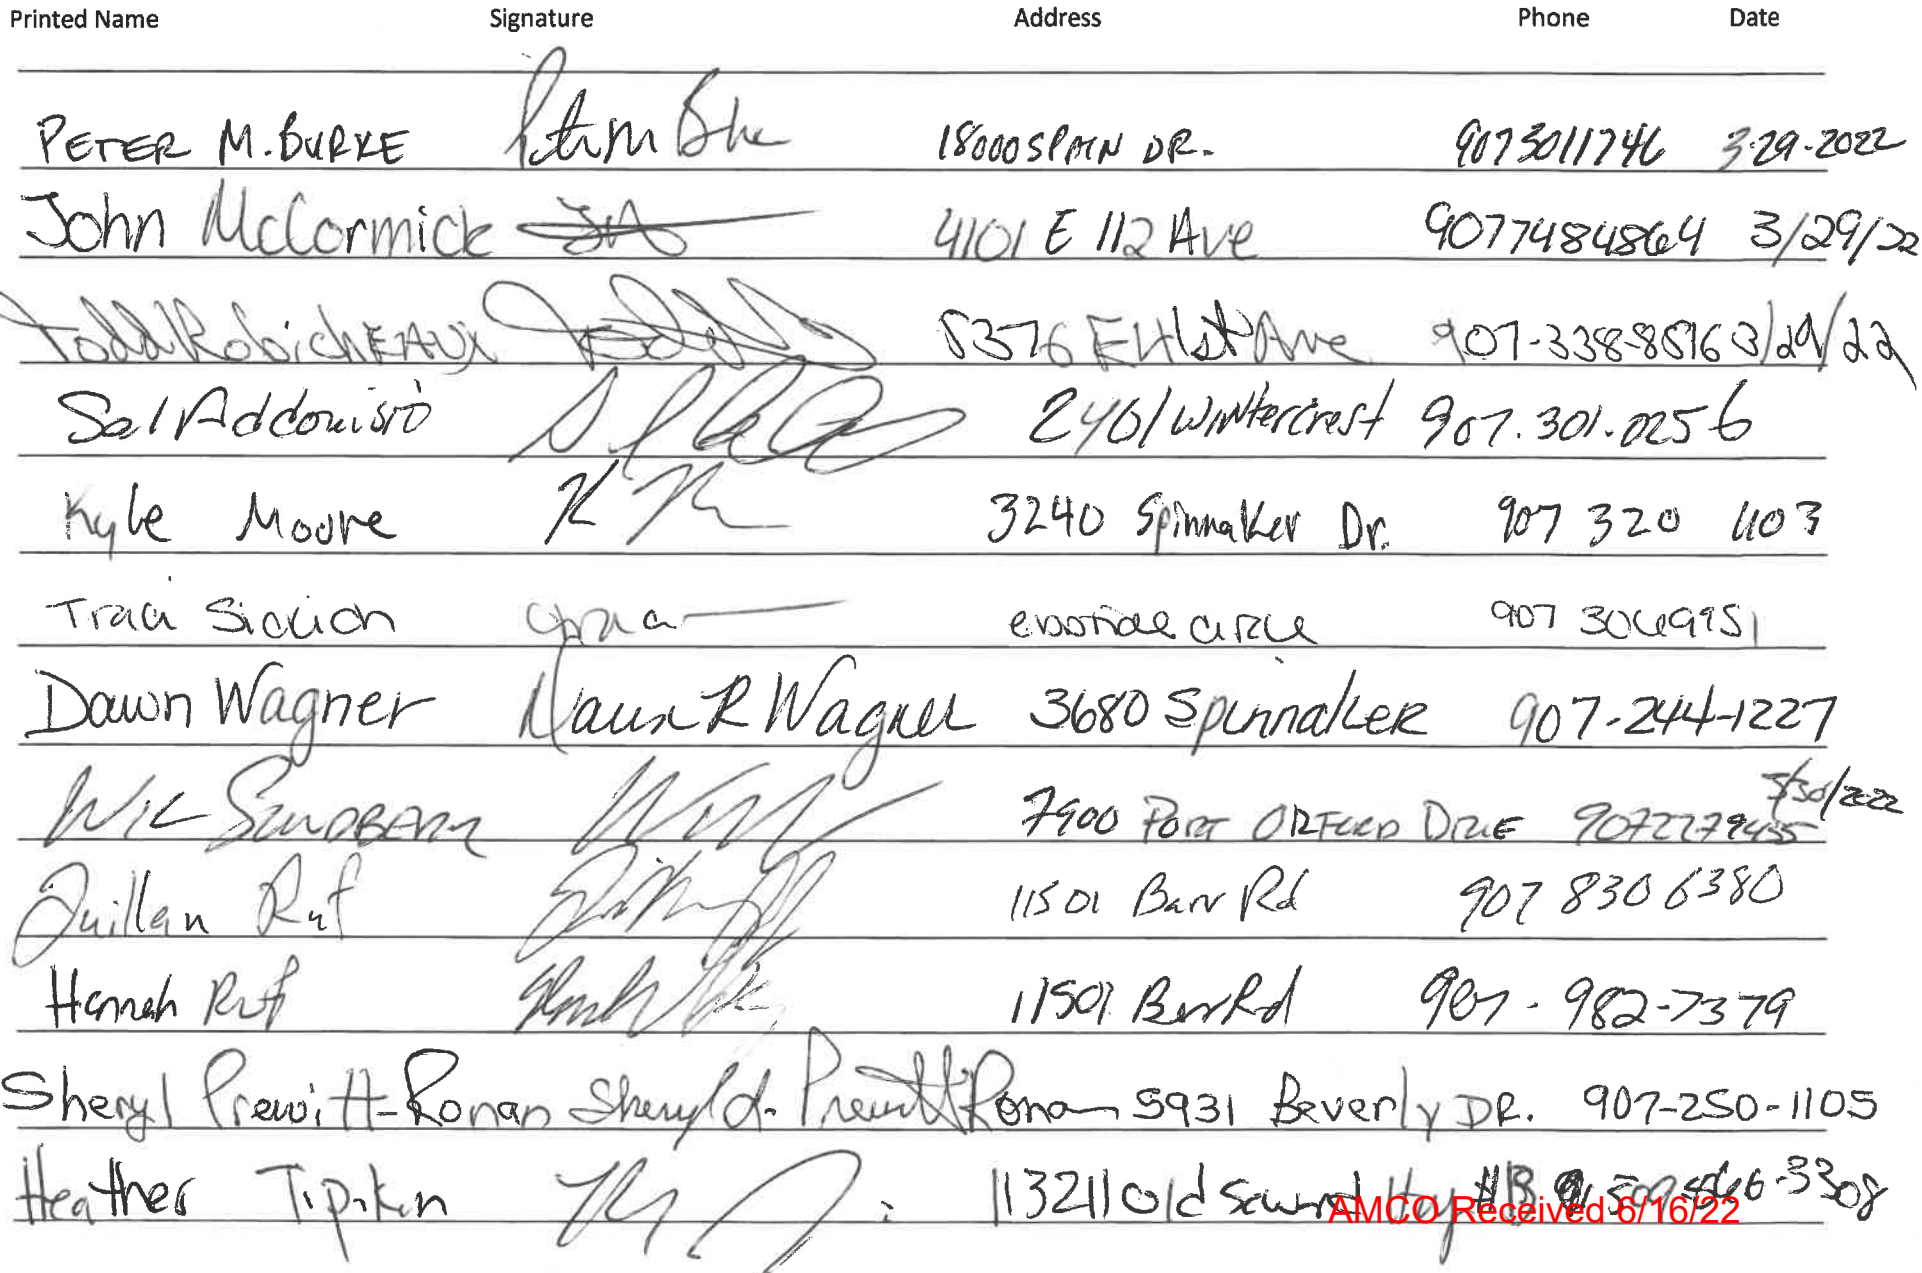 Printed Name Signature Address Phone Date
PETER M. BURKE 18000 SPAIN DR. 9073011746 3-29-2022
John McCormick 4101 E 112 Ave 9077484864 3/29/22
Todd RobichEAUX 5376 E 41st Ave 907-338-8596 3/29/22
Sal Addonisio 2401 Wintercrest 907.301.0256
Kyle Moore 3240 Spinnaker Dr. 907 320 1103
Traci 907
Dawn Wagner Dawn R Wagner 3680 Spinnaker 907-244-1227
WIL SUNDBERG 7900 PORT ORFORD DRIVE 3/30/2022
Quillan Ruf 11501 Barr Rd 907 830 6380
Hannah Ruf 11501 Barr Rd 907-982-7379
Sheryl Prewitt-Ronan Sheryl d. Prewitt Ronan 5931 Beverly DR. 907-250-1105
Heather Tipikin 11321 Old Seward Hwy
AMCO Received 6/16/22